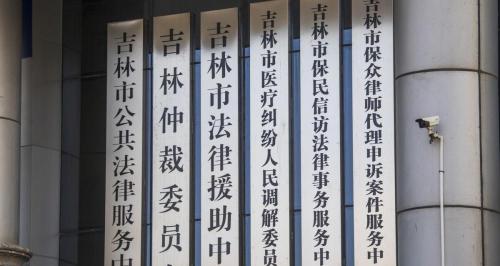 吉林市公共法律服务中
吉林仲裁委员
吉林市法律援助中
吉林市医疗纠纷人民调解委员
吉林市保民信访法律事务服务中
吉林市保众律师代理申诉案件服务中